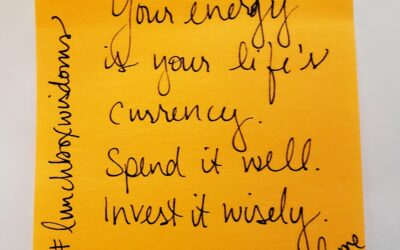 Your energy
is your life's
currency.
Spend it well.
Invest it wisely.
#lunchboxwisdoms